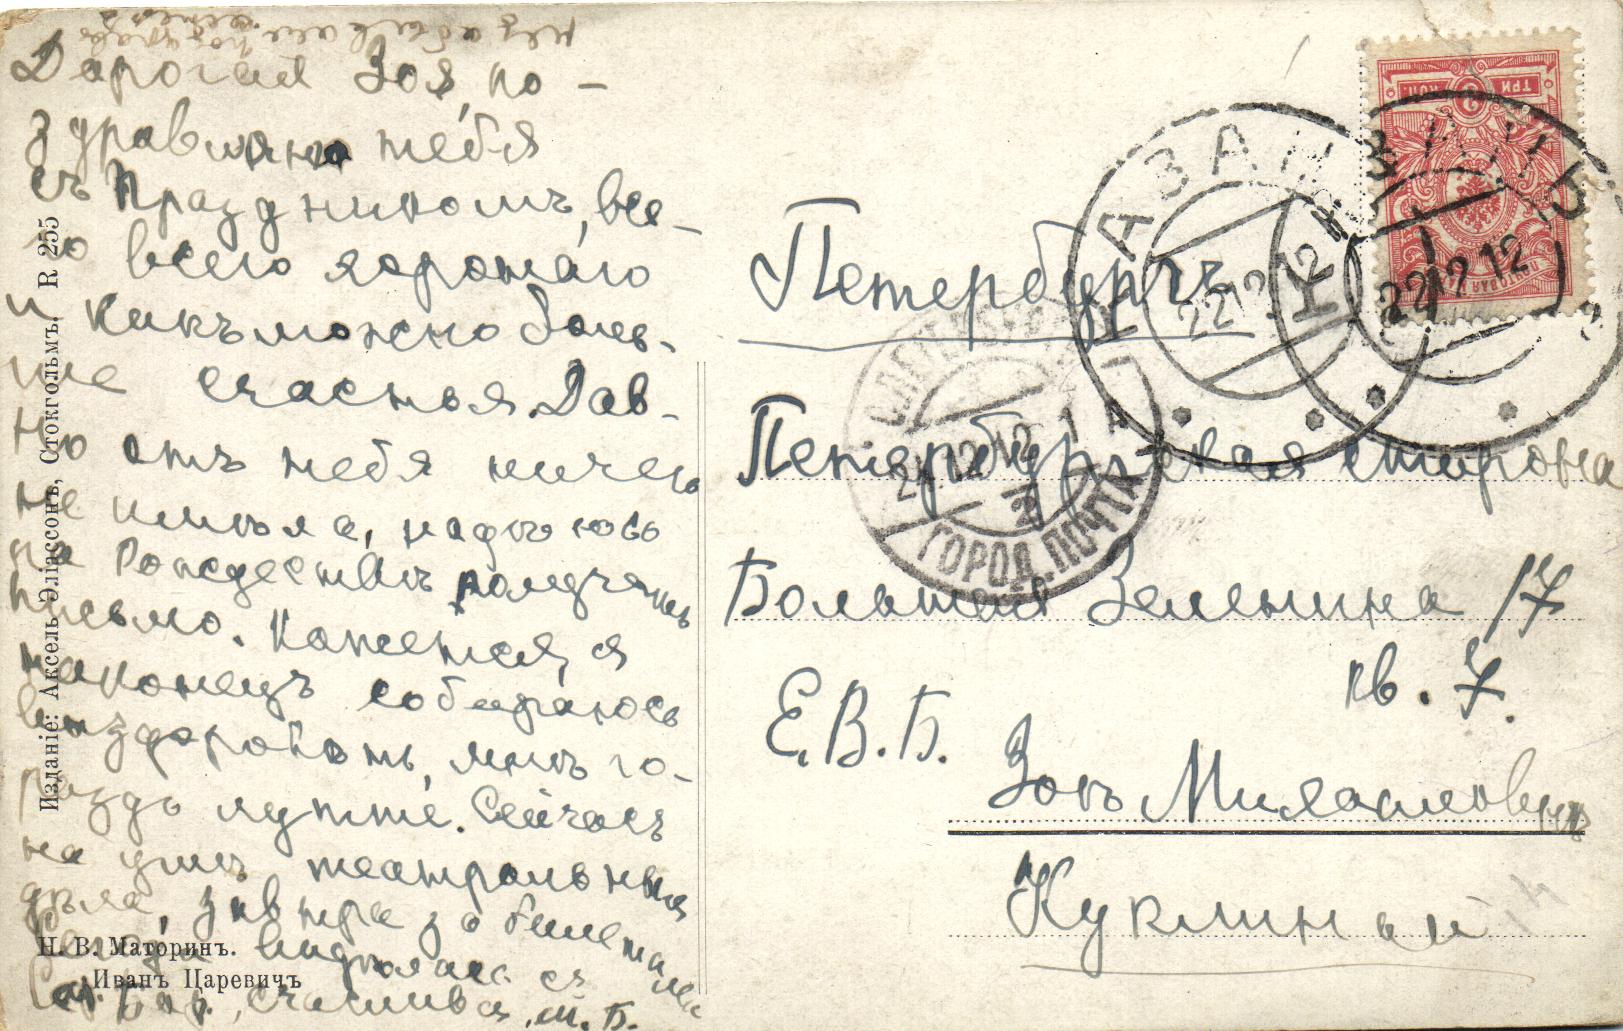 Дарогая Зоя, по-
здравляю тебя
съ праздникомъ, все-
го всего харошаго
и какъ можно боль-
ше счастья. Дав-
но отъ тебя ничего
не имѣла, надѣюсь
на Рождествѣ получить
письмо. Кажется, я
наконецъ собираюсь
выздоровѣть, мнѣ го-
раздо лучше. Сейчасъ
на умѣ театральныя
дѣла, завтра за билетами
видѣлась съ
счастливая, М. Б.
Изданіе: Аксель Эліассонъ, Стокгольмъ. R 255
Н. В. Маторинъ.
Иванъ Царевичъ
ТРИ 3 КОП.
ПОЧТОВАЯ
КАЗАНЬ
22 12 12
КАЗАНЬ
22 12 12
24.12.12 1 А
ГОРОД. ПОЧТА
Петербургъ
Петербургская сторона
Большая Зеленина 17
кв. 7.
Е. В. Б.
Зоѣ Михайловнѣ
Куклиной